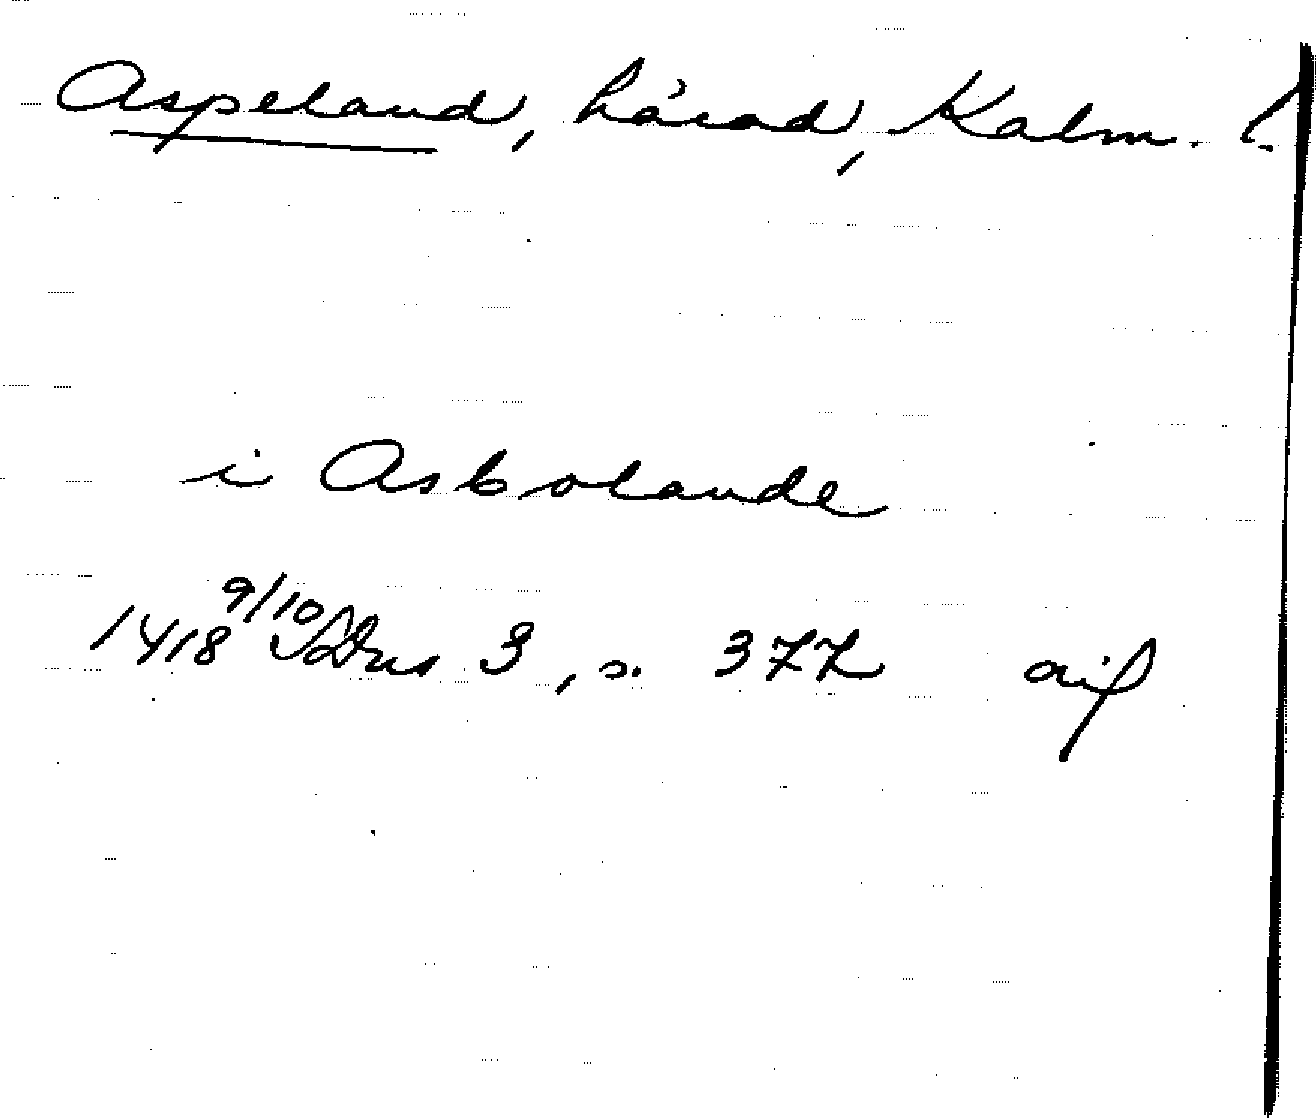 Aspeland, härad, Kalm. l.
i Asbolande
1418 9/10 SDns 3, s. 377 orig